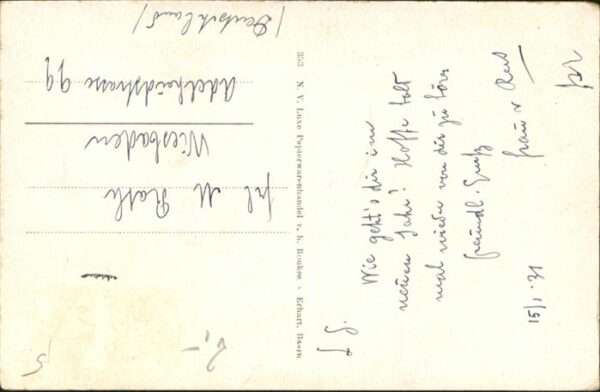 15/1. 31
L. G.
Wie geht's dir im
neuen Jahr? Hoffe bald
mal wieder von dir zu hören
freundl. Gruß
Frau &
353 N. V. Luxe Papierwarenhandel v. h. Roukes & Erhart, Baarn
Frl. M
Wiesbaden
Adelheidstrasse 99
(Deutschland)
2,-
5